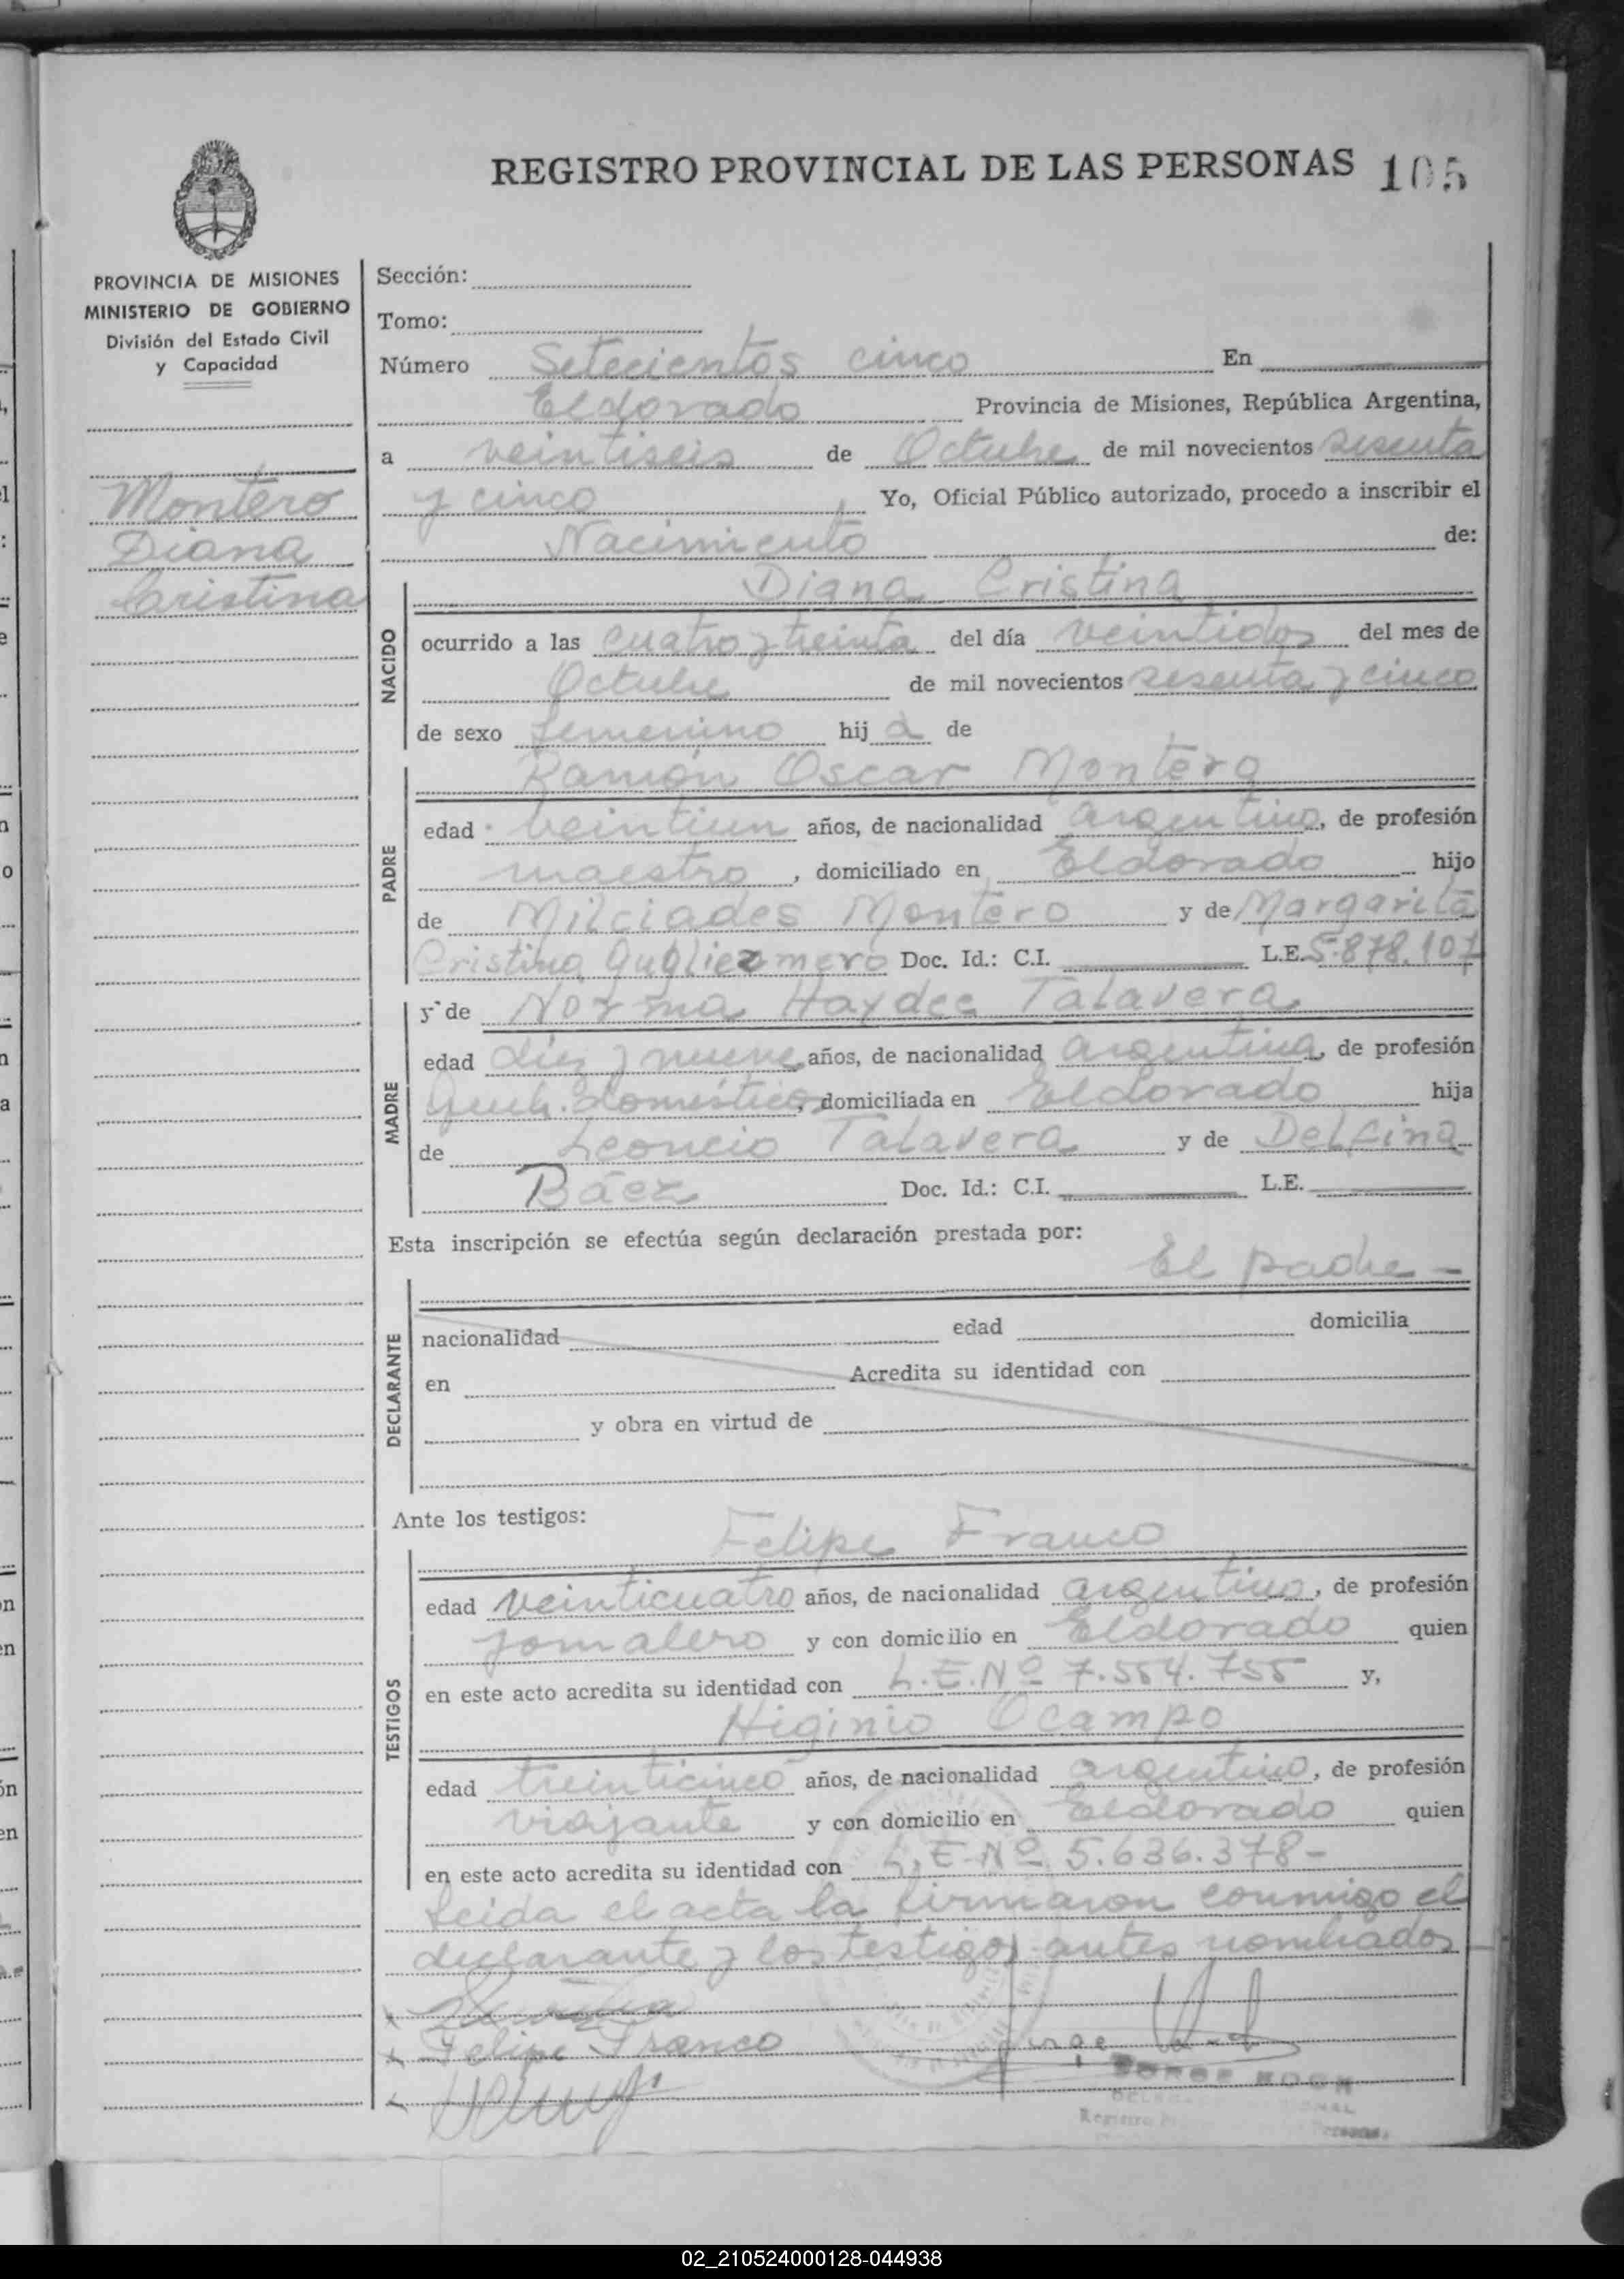 REGISTRO PROVINCIAL DE LAS PERSONAS 105
PROVINCIA DE MISIONES
MINISTERIO DE GOBIERNO
División del Estado Civil
y Capacidad
Montero
Diana
Cristina
Sección:
Tomo:
Número Setecientos cinco En
Eldorado Provincia de Misiones, República Argentina,
a veintiseis de Octubre de mil novecientos sesenta
y cinco Yo, Oficial Público autorizado, procedo a inscribir el
Nacimiento de:
NACIDO
Diana Cristina
ocurrido a las cuatro y treinta del día veintidos del mes de
Octubre de mil novecientos sesenta y cinco
de sexo femenino hij a de
PADRE
Ramón Oscar Montero
edad veintiun años, de nacionalidad argentino, de profesión
maestro, domiciliado en Eldorado hijo
de Milciades Montero y de Margarita
Cristina Gugliezmero Doc. Id.: C.I. L.E. 5.878.107
MADRE
y de Norma Haydee Talavera
edad diez y nueve años, de nacionalidad argentina, de profesión
domésticos, domiciliada en Eldorado hija
de Leoncio Talavera y de Delfina
Báez Doc. Id.: C.I. L.E.
Esta inscripción se efectúa según declaración prestada por:
El padre -
DECLARANTE
nacionalidad edad domicilia
en Acredita su identidad con
y obra en virtud de
Ante los testigos:
TESTIGOS
Felipe Franco
edad veinticuatro años, de nacionalidad argentino, de profesión
jornalero y con domicilio en Eldorado quien
en este acto acredita su identidad con L.E.Nº 7.554.755 y,
Higinio Ocampo
edad treinticinco años, de nacionalidad argentino, de profesión
viajante y con domicilio en Eldorado quien
en este acto acredita su identidad con L.E-Nº 5.636.378-
Leida el acta la firmaron conmigo el
declarante y los testigos antes nombrados
Felipe Franco
Jorge
JORGE KOCH
02_210524000128-044938